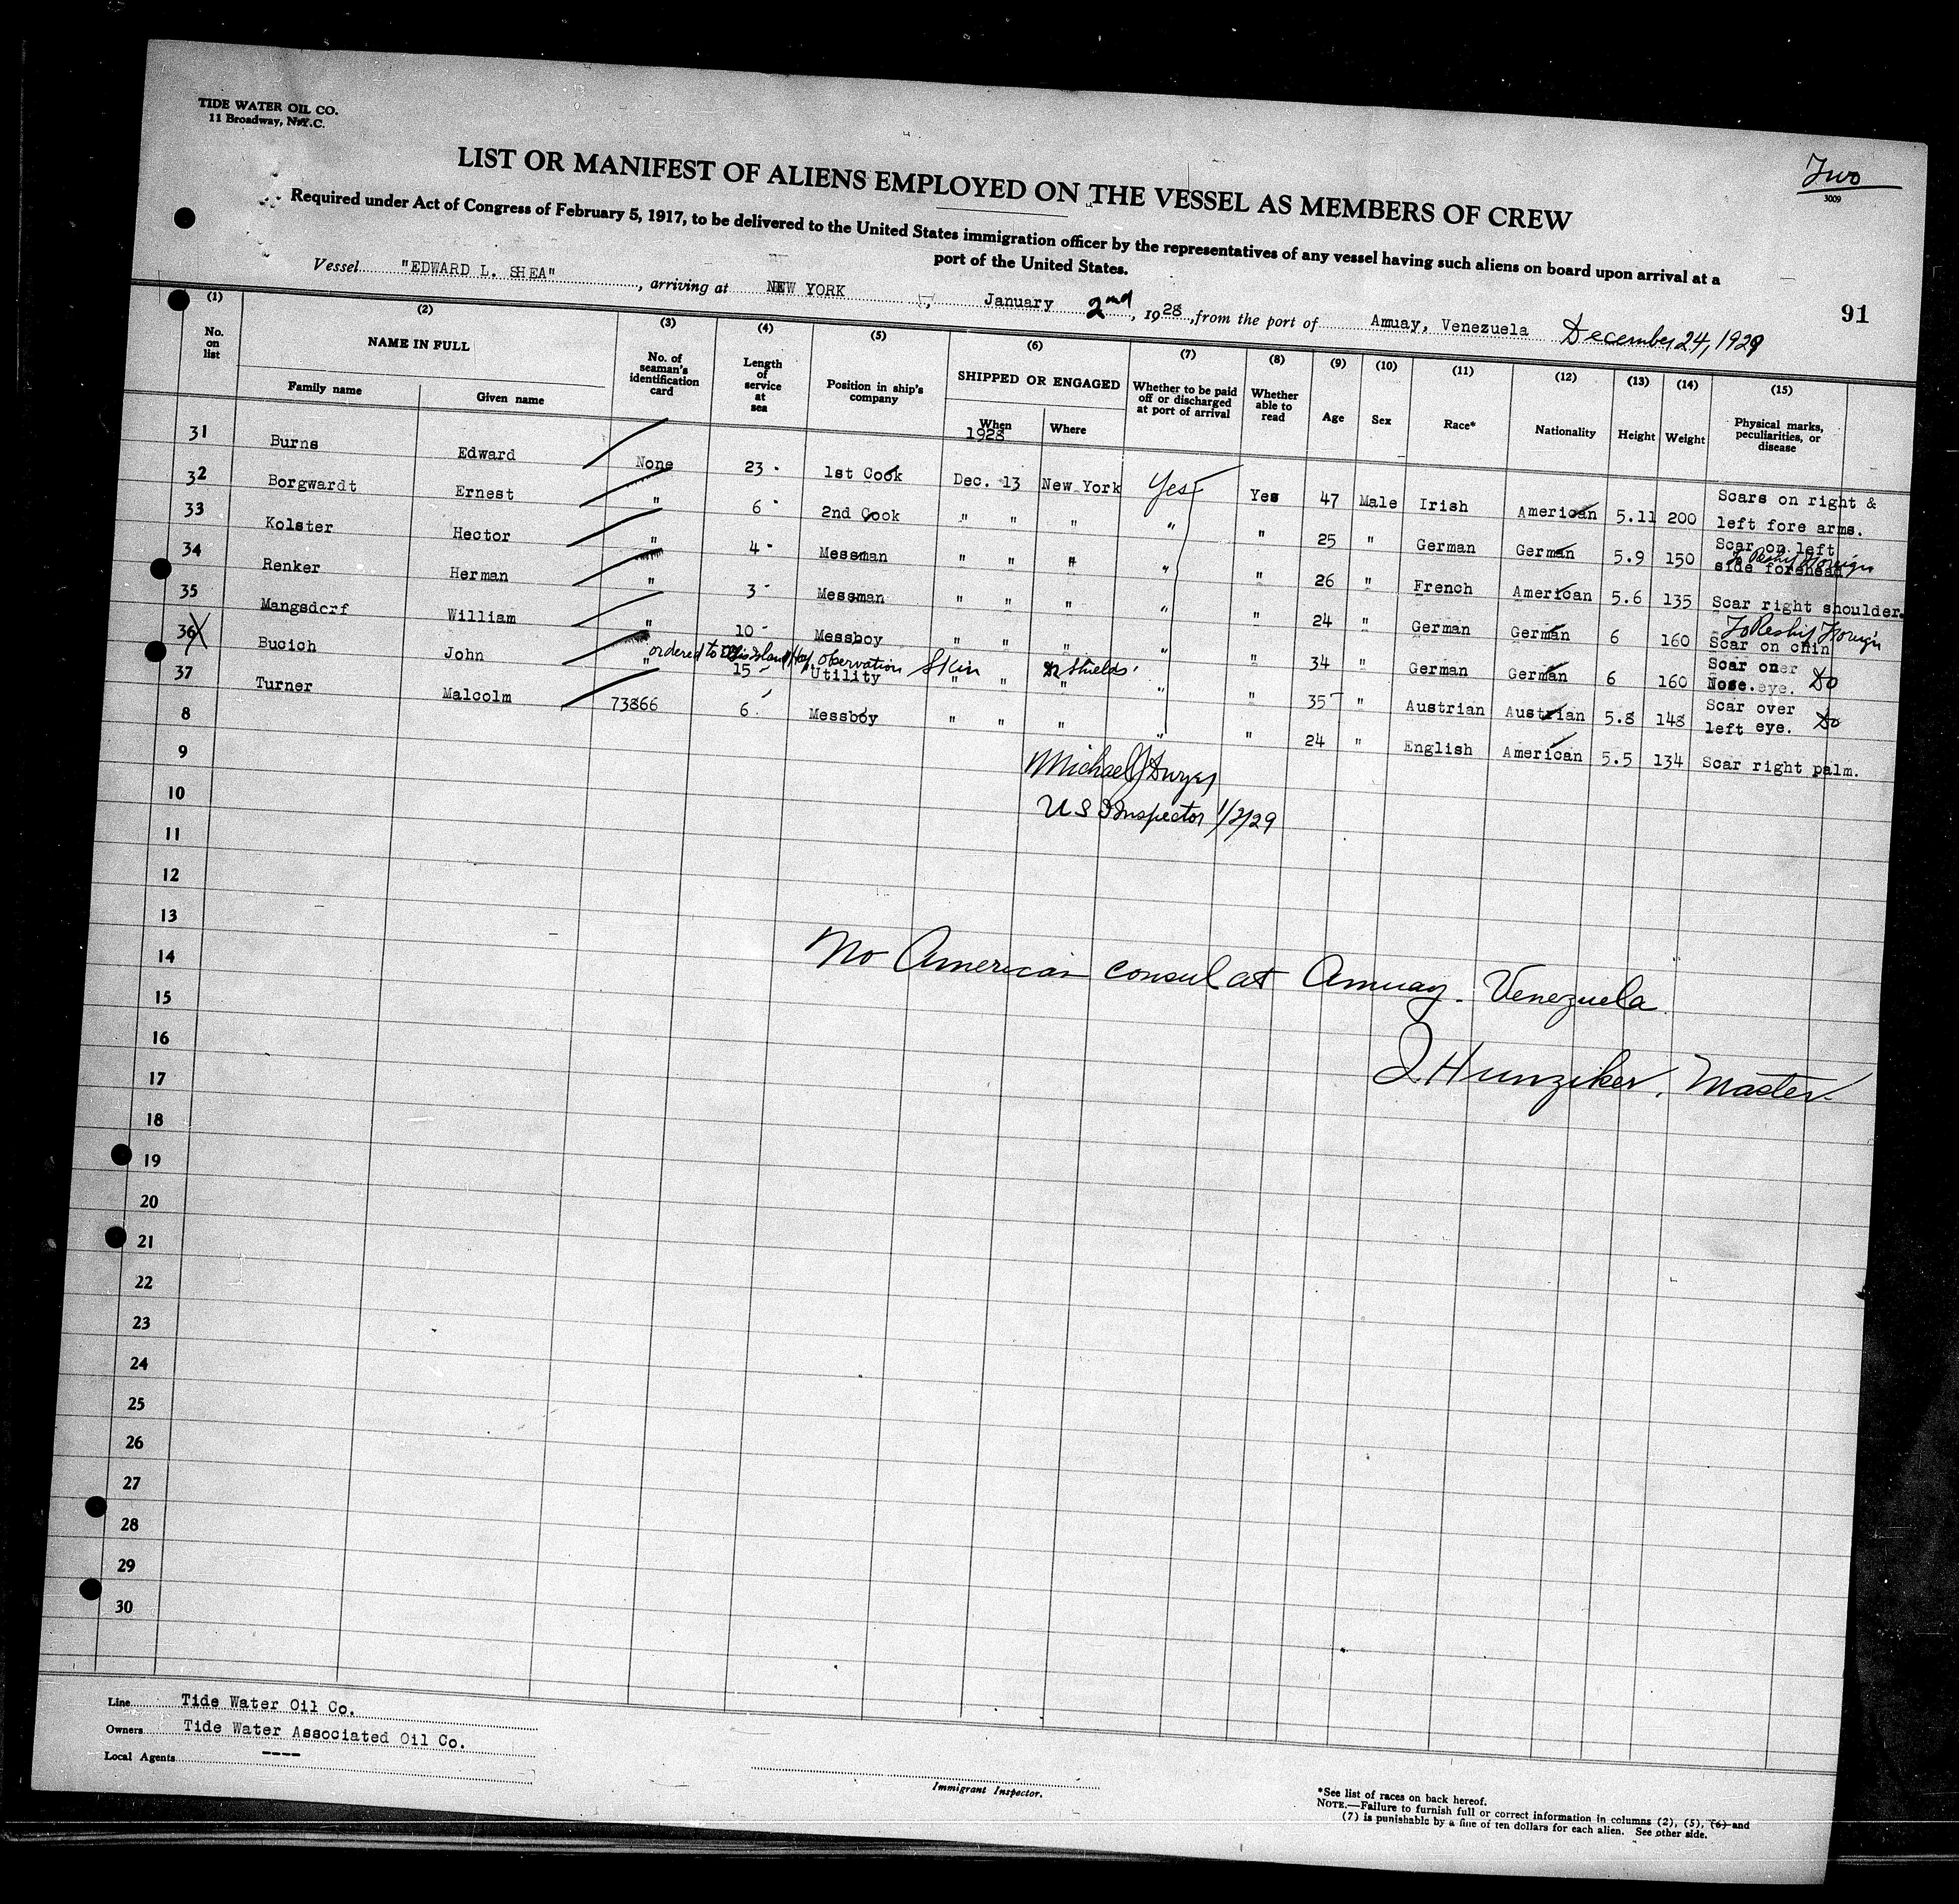 TIDE WATER OIL CO.
11 Broadway, N.Y.C.
Two
3009
LIST OR MANIFEST OF ALIENS EMPLOYED ON THE VESSEL AS MEMBERS OF CREW
Required under Act of Congress of February 5, 1917, to be delivered to the United States immigration officer by the representatives of any vessel having such aliens on board upon arrival at a
port of the United States.
Vessel "EDWARD L. SHEA" , arriving at NEW YORK , January 2nd , 1928 , from the port of Amuay, Venezuela December 24, 1929
91
(1) (2) (3) (4) (5) (6) (7) (8) (9) (10) (11) (12) (13) (14) (15)
No. on list
NAME IN FULL
Family name Given name
No. of seaman's identification card
Length of service at sea
Position in ship's company
SHIPPED OR ENGAGED
When Where
1928
Whether to be paid off or discharged at port of arrival
Whether able to read
Age Sex Race* Nationality Height Weight
Physical marks, peculiarities, or disease
31 Burns Edward None 23 1st Cook Dec. 13 New York Yes Yes 47 Male Irish American 5.11 200 Scars on right & left fore arms.
32 Borgwardt Ernest " 6 2nd Cook " " " " " 25 " German German 5.9 150 Scar on left side forehead
33 Kolster Hector " 4 Messman " " " " " 26 " French American 5.6 135 Scar right shoulder.
34 Renker Herman " 3 Messman " " " " " 24 " German German 6 160 To Reship Foreign Scar on chin
35 Mangsdorf William " 10 Messboy " " " " " 34 " German German 6 160 Scar one Nose. eye. Do
ordered to Ellis Island Hosp observation Skin Dr Shields
36 X Bucich John " 15 Utility " " " " " 35 " Austrian Austrian 5.8 148 Scar over left eye. Do
37 Turner Malcolm 73866 6 Messboy " " " " " 24 " English American 5.5 134 Scar right palm.
8
9
Michael J Dwyer
10
U S I Inspector 1/2/29
11
12
13
14
No American consul at Amuay. Venezuela.
15
16
J. Hunziker, Master.
17
18
19
20
21
22
23
24
25
26
27
28
29
30
Line Tide Water Oil Co.
Owners Tide Water Associated Oil Co.
Local Agents ----
Immigrant Inspector.
*See list of races on back hereof.
NOTE.—Failure to furnish full or correct information in columns (2), (5), (6) and
(7) is punishable by a fine of ten dollars for each alien. See other side.